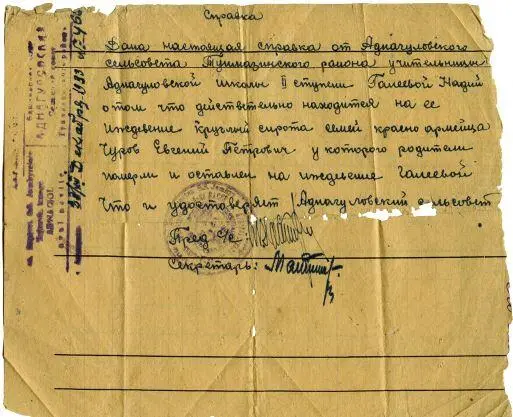 Справка
Дана настоящая справка от Аднагуловского
сельсовета Туймазинского района учительницы
Аднагуловской школы II ступени Галеевой Надии
о том что действительно находится на ее
иждевение круглый сирота семей красноармейца
Чуров Евгений Петрович у которого родители
померли и оставлен на иждевение Галеевой
Что и удостоверяет Аднагуловский сельсовет
Пред с/с
Секретарь:
АДНАГУЛОВСКАЯ
Декабря 1933